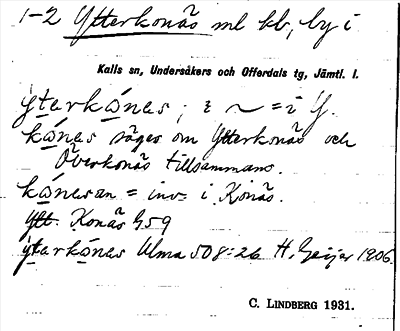 1-2 Ytterkonäs ml kb, by i
Kalls sn, Undersåkers och Offerdals tg, Jämtl. l.
ýtarkónes; i ~ = i Y.
kónes säges om Ytterkonäs och
Överkonäs tillsammans.
kónesan = inv. i Konäs.
Ytt. Konäs G59
ýtarkónes Ulma 508:26 H. Geijer 1906.
C. LINDBERG 1931.